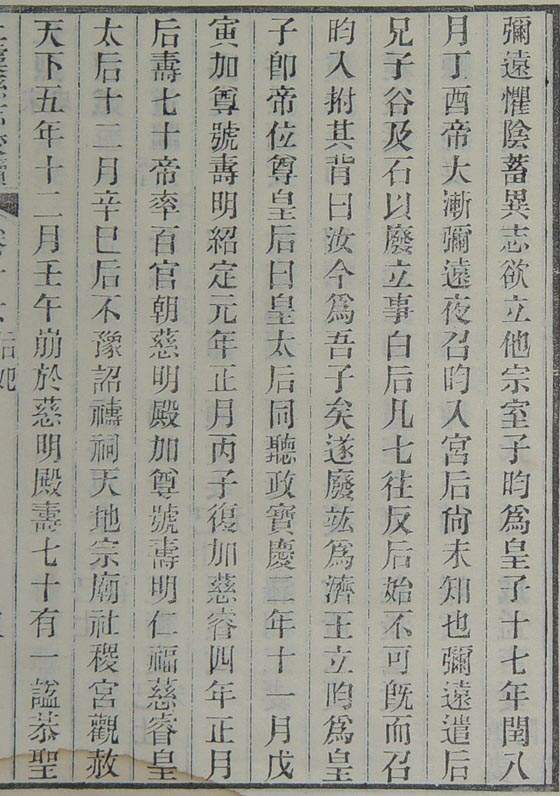 彌遠懼陰蓄異志欲立他宗室子昀爲皇子十七年閏八
月丁酉帝大漸彌遠夜召昀入宮后尙未知也彌遠遣后
兄子谷及石以廢立事白后凡七往反后始不可旣而召
昀入拊其背曰汝今爲吾子矣遂廢竑爲濟王立昀爲皇
子卽帝位尊皇后曰皇太后同聽政寶慶二年十一月戊
寅加尊號壽明紹定元年正月丙子復加慈睿四年正月
后壽七十帝率百官朝慈明殿加尊號壽明仁福慈睿皇
太后十二月辛巳后不豫詔禱祠天地宗廟社稷宮觀赦
天下五年十二月壬午崩於慈明殿壽七十有一謚恭聖
后妃